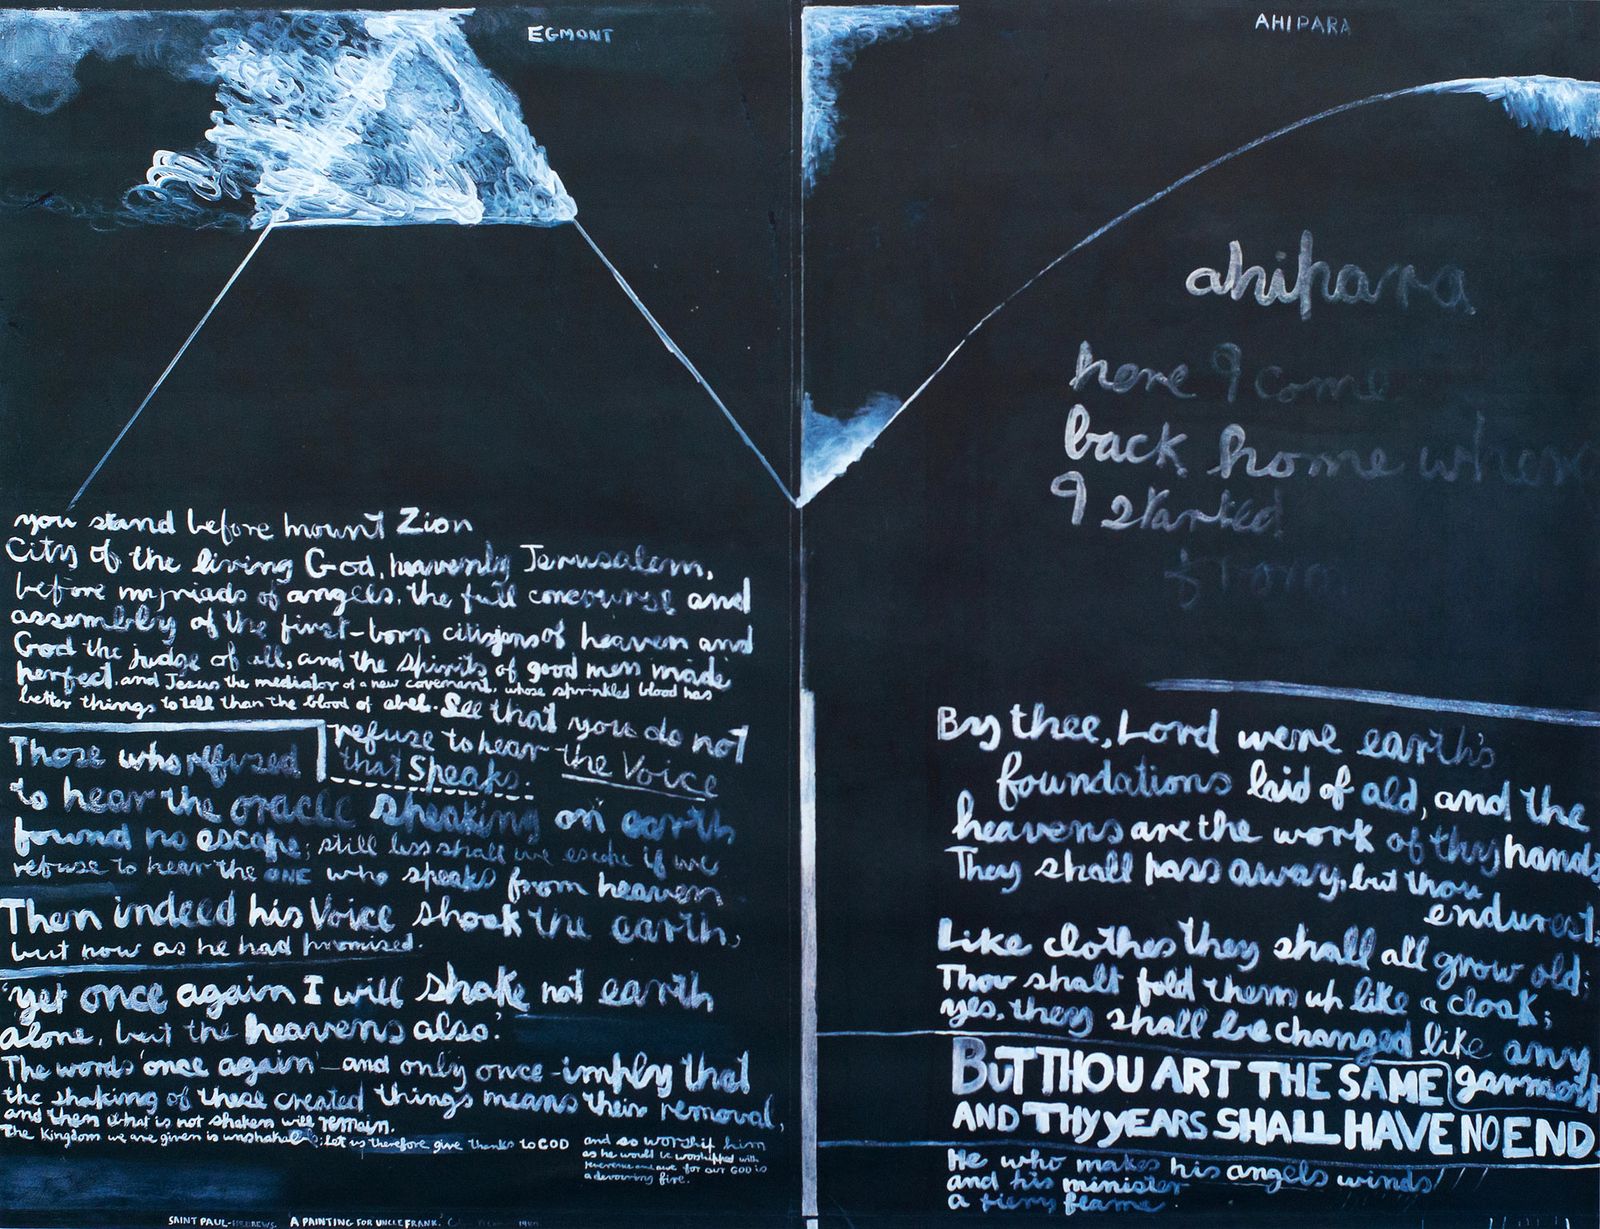 EGMONT
you stand before mount Zion
City of the living God, heavenly Jerusalem,
before myriads of angels, the full concourse and
assembly of the first-born citizens of heaven and
God the judge of all, and the spirits of good men made
perfect, and Jesus the mediator of a new covenant, whose sprinkled blood has
better things to tell than the blood of abel. See that you do not
refuse to hear the Voice
that speaks.
Those who refused
to hear the oracle speaking on earth
found no escape; still less shall we escape if we
refuse to hear the ONE who speaks from heaven
Then indeed his Voice shook the earth,
but now as he had promised.
'yet once again I will shake not earth
alone, but the heavens also.'
The words 'once again' - and only once - imply that
the shaking of these created things means their removal,
and then what is not shaken will remain.
The Kingdom we are given is unshakable; let us therefore give thanks to GOD
and so worship him
as he would be worshipped with
reverence and awe for our GOD is
a devouring fire.
SAINT PAUL-HEBREWS. 'A PAINTING FOR UNCLE FRANK.'
AHIPARA
ahipara
here I come
back home where
I started
from
By thee, Lord were earth's
foundations laid of old, and the
heavens are the work of thy hands
They shall pass away, but thou
endurest;
Like clothes they shall all grow old;
Thou shalt fold them up like a cloak;
yes, they shall be changed like any
garment
BUT THOU ART THE SAME
AND THY YEARS SHALL HAVE NO END.
He who makes his angels winds
and his minister
a fiery flame